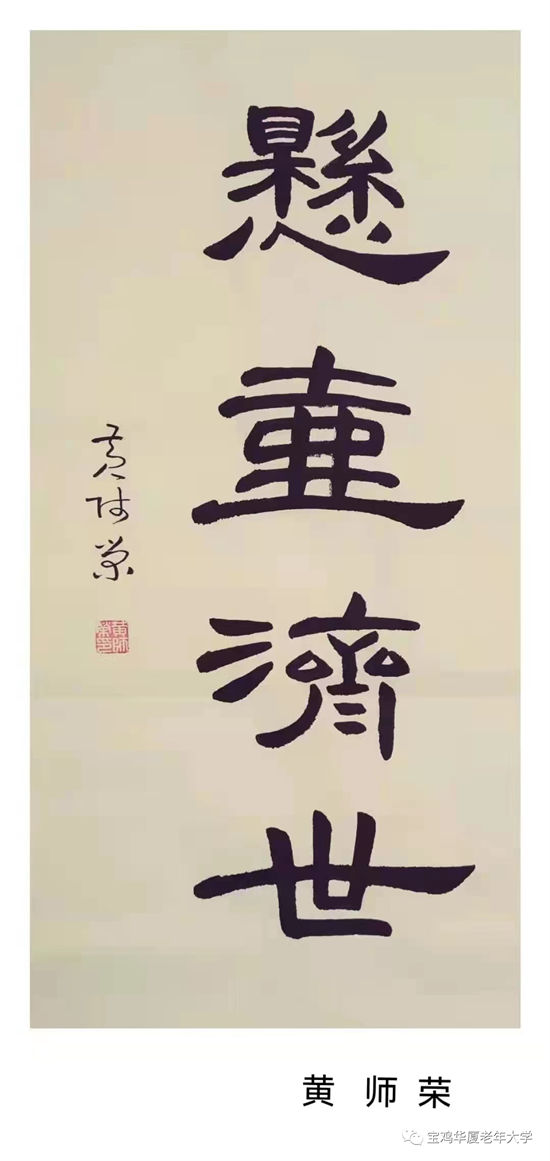 懸壺濟世
黄师荣
黄師榮印
黄 师 荣
宝鸡华厦老年大学